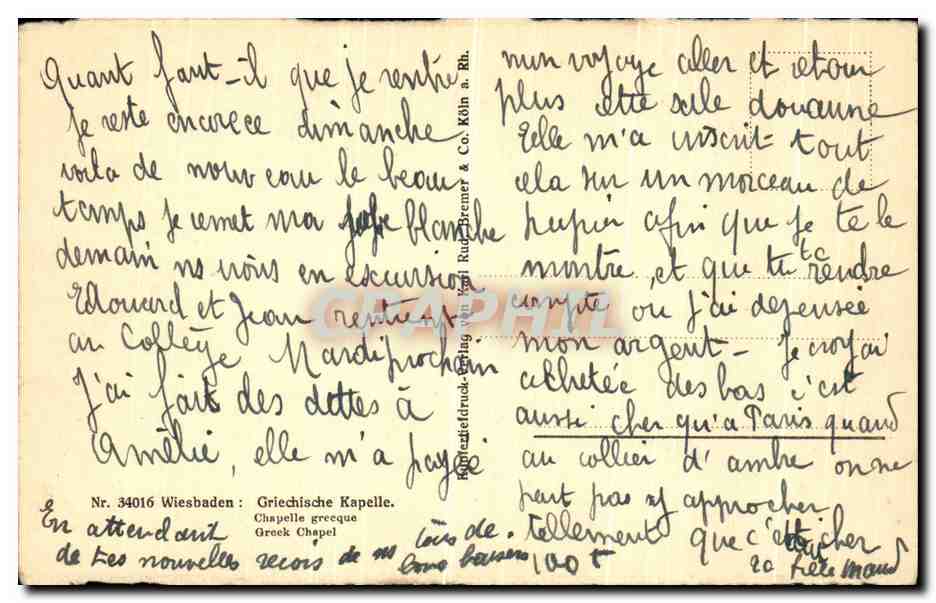 Quant faut-il que je rentre
Je reste encorece dimanche
voila de nouveau le beau
temps je remet ma jupe blanche
demain ns irons en excursion
Edouard et Jean rentrent
au Collège Mardi prochain
J'ai fait des dettes à
Amélie, elle m'a payée
mon voyage aller et retour
plus cette sale douanne
Elle m'a inscrit tout
cela sur un morceau de
papier afin que je te le
montre, et que tu te rendre
compte ou j'ai dépensée
mon argent - Je croyai
achetée des bas c'est
aussi cher qu'a Paris quand
au collier d'ambre on ne
peut pas y approcher
tellement que c'était cher
100 t
Nr. 34016 Wiesbaden: Griechische Kapelle.
Chapelle grecque
Greek Chapel
En attendant
de tes nouvelles recois de ns tous de
bons baisers
ta fille Maud
Kupfertiefdruck-Verlag von Karl Rud. Bremer & Co. Köln a. Rh.
CPAPHIL